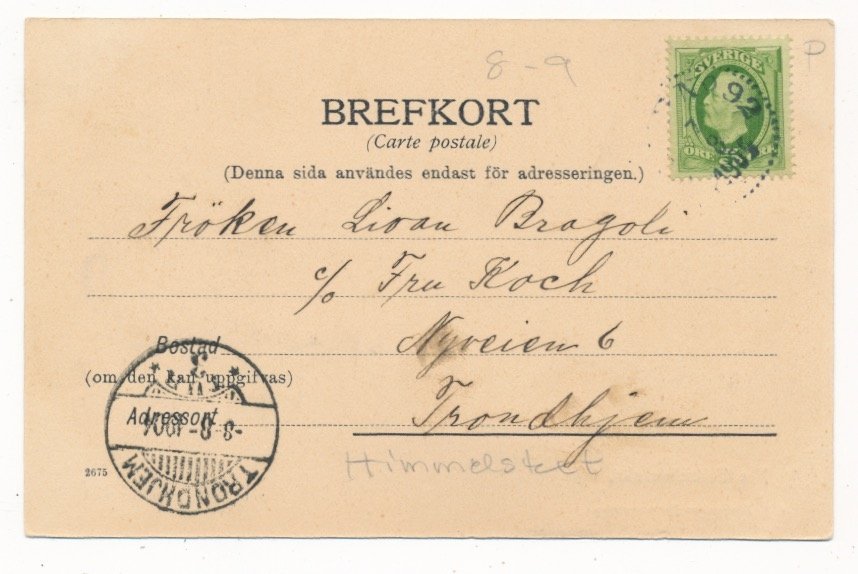 8-9
P
SVERIGE
92
BREFKORT
(Carte postale)
(Denna sida användes endast för adresseringen.)
Fröken Livan Bragoli
c/o Fru Koch
Nyveien 6
Bostad
(om den kan uppgifvas)
Trondhjem
Adressort
-8-8-1904
TRONDHJEM
2675